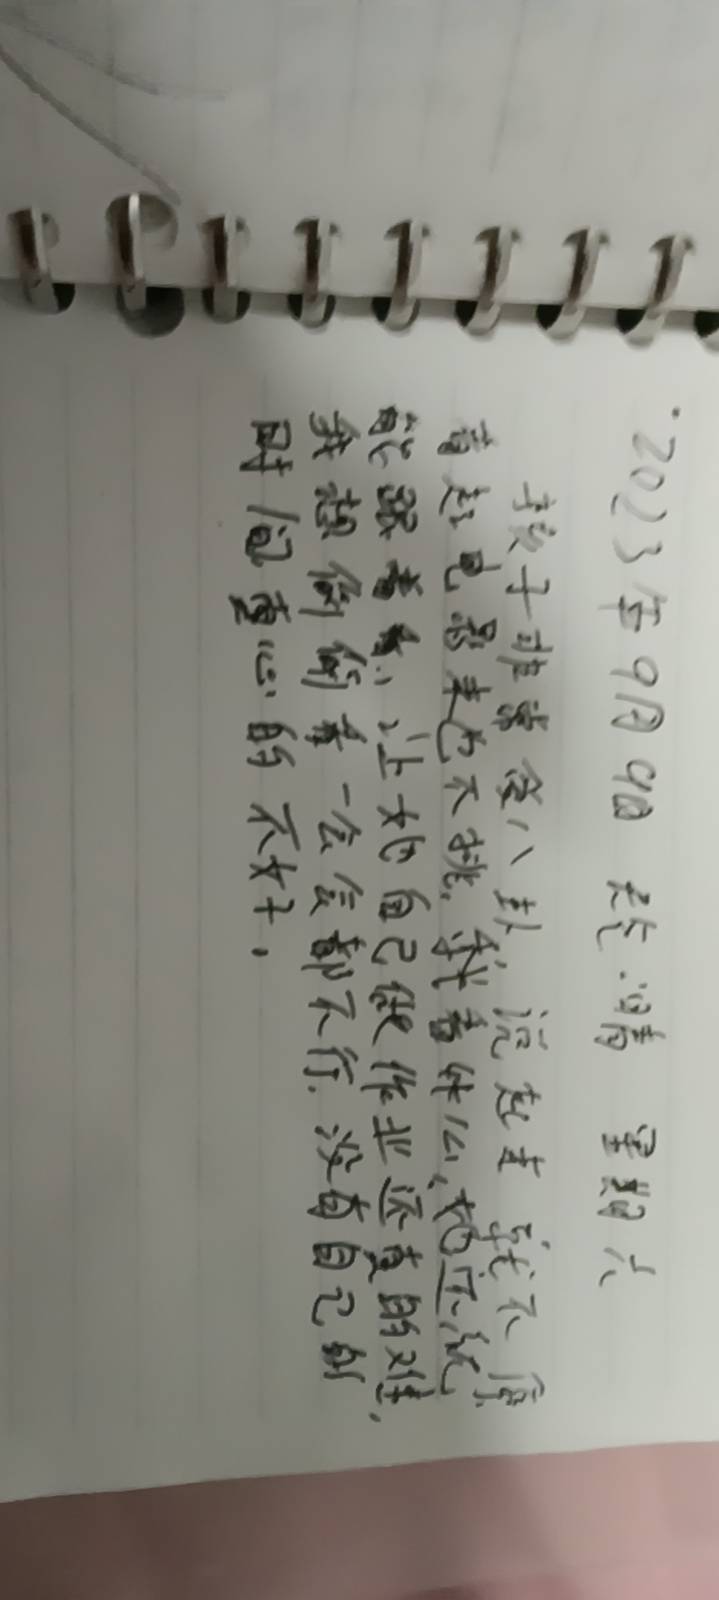 2023年9月9日 晴 星期六
孩子非常会八卦, 说起来就不停
看起电影来也不挑, 我看什么, 她还能
能跟着看, 让她自己做作业还真的难,
我想偷偷看一会会都不行. 没有自己的
时间真心的不好.